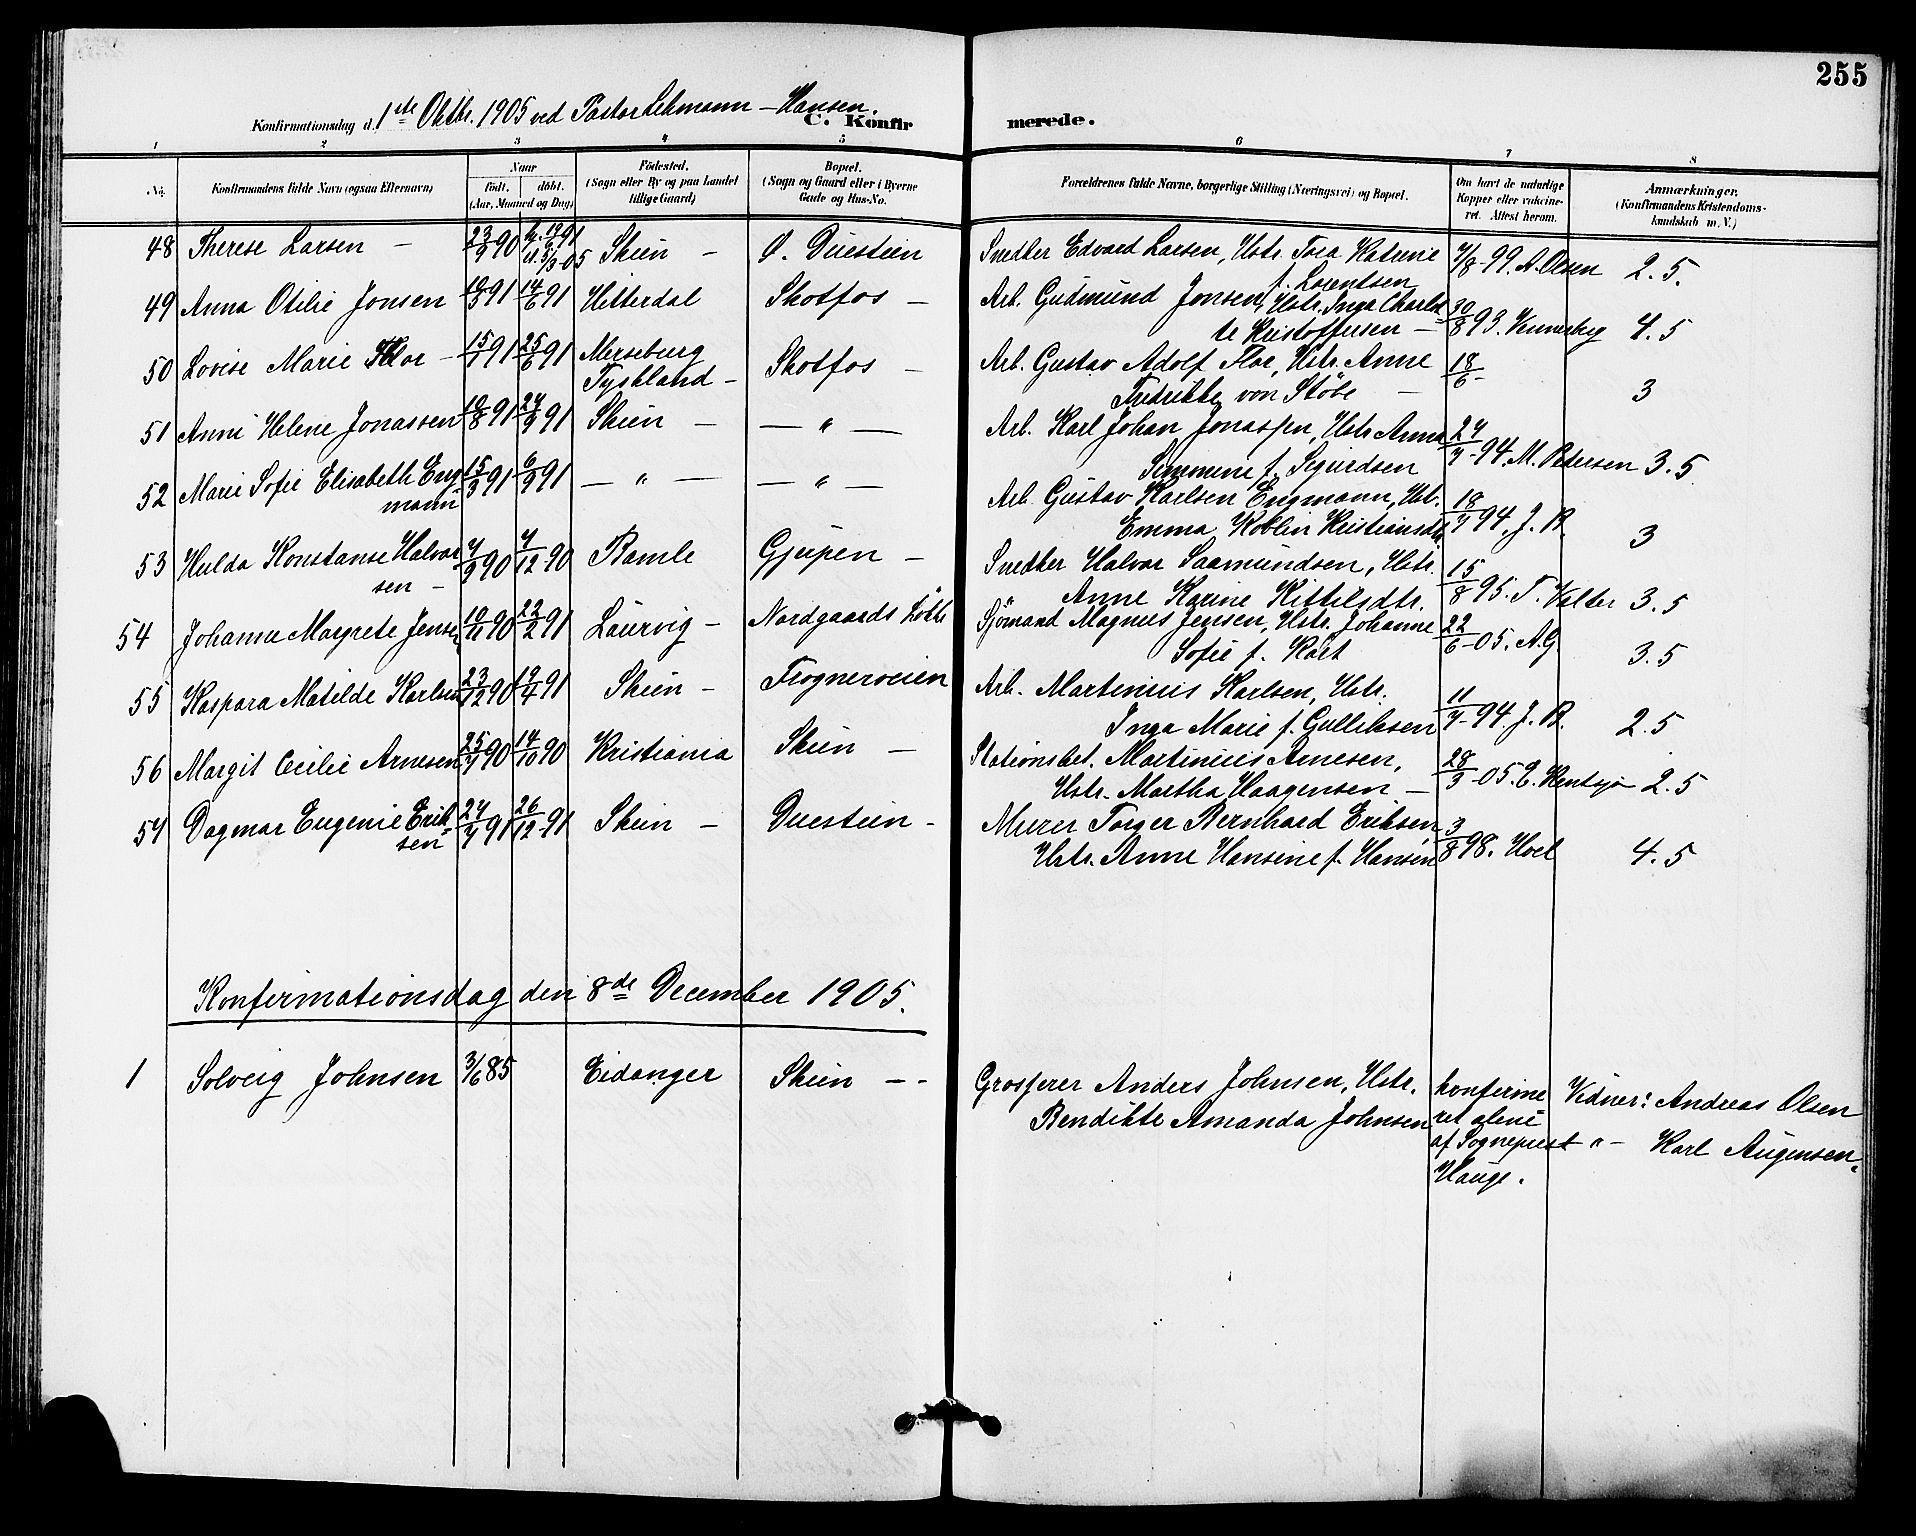 255
Konfirmationsdag d. 1ste Oktbr. 1905 ved Pastor Lehmann-Hansen.
C. Konfirmerede.
1 2 3 4 5 6 7 8
No. Konfirmandens fulde Navn (ogsaa Efternavn) Naar født. døbt. (Aar, Maaned og Dag) Fødested. (Sogn eller By og paa Landet tillige Gaard) Bopæl. (Sogn og Gaard eller i Byerne Gade og Hus-No. Forældrenes fulde Navne, borgerlige Stilling (Næringsvei) og Bopæl. Om havt de naturlige Kopper eller vakcineret. Attest herom. Anmærkninger. (Konfirmandens Kristendomskundskab m. V.)
48 Therese Larsen – 23/9 90 Skien – Ø. Duestien Snedker Edvard Larsen, Hstr. Tora Katrine f. Lorentsen 7/8 99. A. Olsen 2.5.
49 Anna Otilie Jonsen 19/3 91 14/6 91 Hitterdal Skotfos – Arb. Gudmund Jonsen, Hstr. Inga Charlotte Kristoffersen – 30/8 93. Vennerberg 4.5
50 Lovise Marie Flor – 15/1 91 25/6 91 Merseburg Tyskland – Skotfos – Arb. Gustav Adolf Flor, Hstr. Anne Fredrikke von Støbe – 18/6 – 3
51 Anni Helene Jonassen 19/8 91 27/9 91 Skien – – " – Arb. Karl Johan Jonassen, Hstr. Anna Simmine f. Sigurdsen 27/7 – 94. M. Petersen 3.5
52 Marie Sofie Elisabeth Engmann 15/3 91 6/9 91 – " – – " – Arb. Gustav Karlsen Engmann, Hstr. Emma Koblin Kristiansdtr. 18/7 94. J. R. 3
53 Hulda Konstanse Halvorsen – 7/9 90 7/12 – 90 Bamle Gjerpen – Snedker Halvor Saamundsen, Hstr. Anne Karine Kittilsdtr. 15/8 95. T. Valter 3.5
54 Johanne Margrete Jensen 19/11 90 22/2 91 Laurvig – Nordgaards Løkke Sjømand Magnus Jensen, Hstr. Johanne Sofie f. Kart 22/6 – 05. A.G. 3.5
55 Kaspara Matilde Karlsen 23/12 90 19/4 91 Skien – Frogneveien Arb. Martinius Karlsen, Hstr. Inga Marie f. Gulliksen 11/7 – 94. J. R. 2.5
56 Margit Cecilie Arnesen 25/7 90 14/10 90 Kristiania Skien – Stationsbet. Martinius Arnesen, Hstr. Martha Haagensen – 28/3 – 05. 2.5
57 Dagmar Eugenie Eriksen 27/7 91 26/12 – 91 Skien – Duestien – Murer Torger Bernhard Eriksen Hstr. Anne Hansine f. Hansen 3/8 98. Hoel 4.5
Konfirmationsdag den 8de December 1905.
1 Solveig Johnsen 3/6 85 Eidanger Skien – – Grosserer Anders Johnsen, Hstr. Bendikte Amanda Johnsen konfirmeret alene af Sogneprest Hauge. Vidner: Andreas Olsen
" – Karl Augensen.